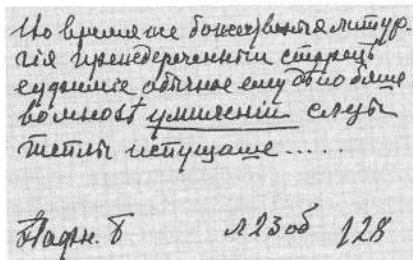 Но время же божественыя литур.
гія преждереченныи старець
обычное ему дѣло бяше
во мноsѣ умиленіи слезы
теплы испущаше.....
Пафн. Б л 23 об 128